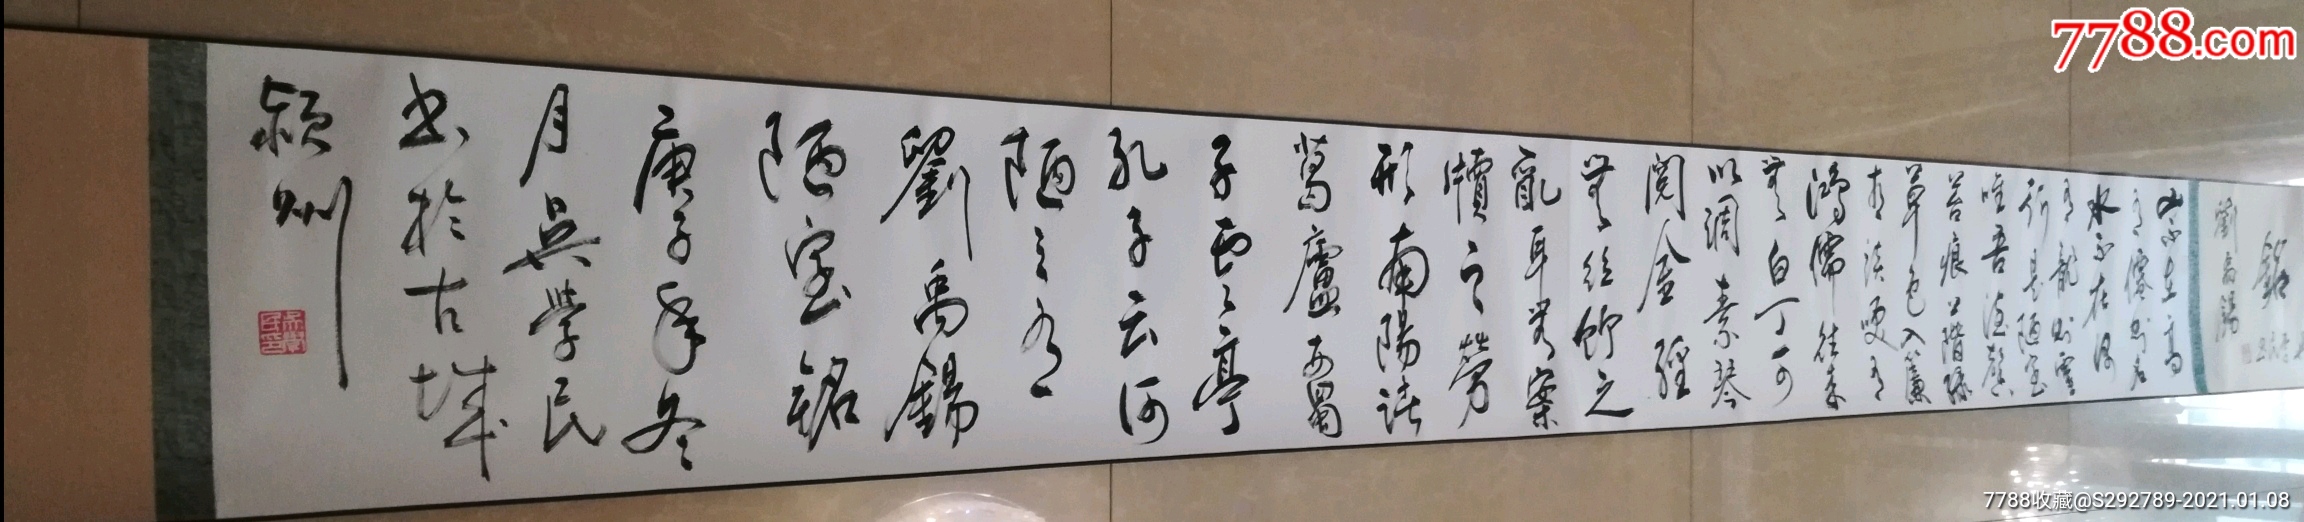 銘
劉禹錫
山不在高
有僊則名
水不在深
有龍則靈
斯是陋室
唯吾德馨
苔痕上階緑
草色入簾
青談咲有
鴻儒往来
無白丁可
以調素琴
閲金經
無絲竹之
亂耳無案
牘之勞
形南陽諸
葛廬西蜀
子雲亭
孔子云何
陋之有
劉禹錫
陋室銘
庚子年冬
月吳學民
書於古城
潁州
吳學民印
7788.com
7788收藏@S292789-2021.01.08